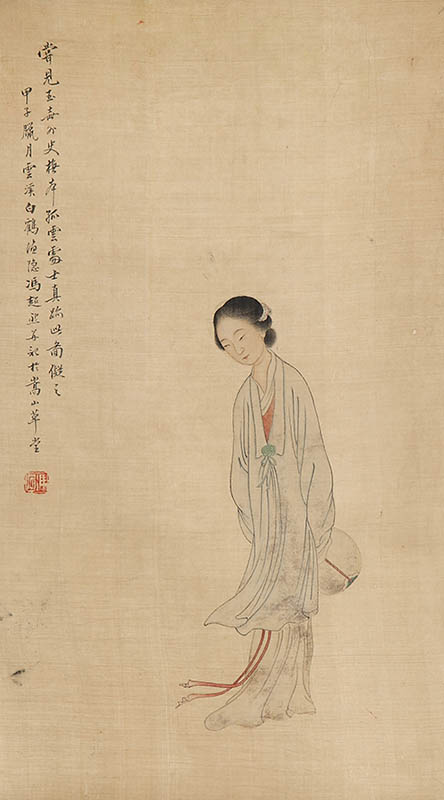 嘗見玉壺外史橅本孤雲處士真跡此啚儗之
甲子臘月雲溪白鶴漁隐馮超然并記於嵩山草堂